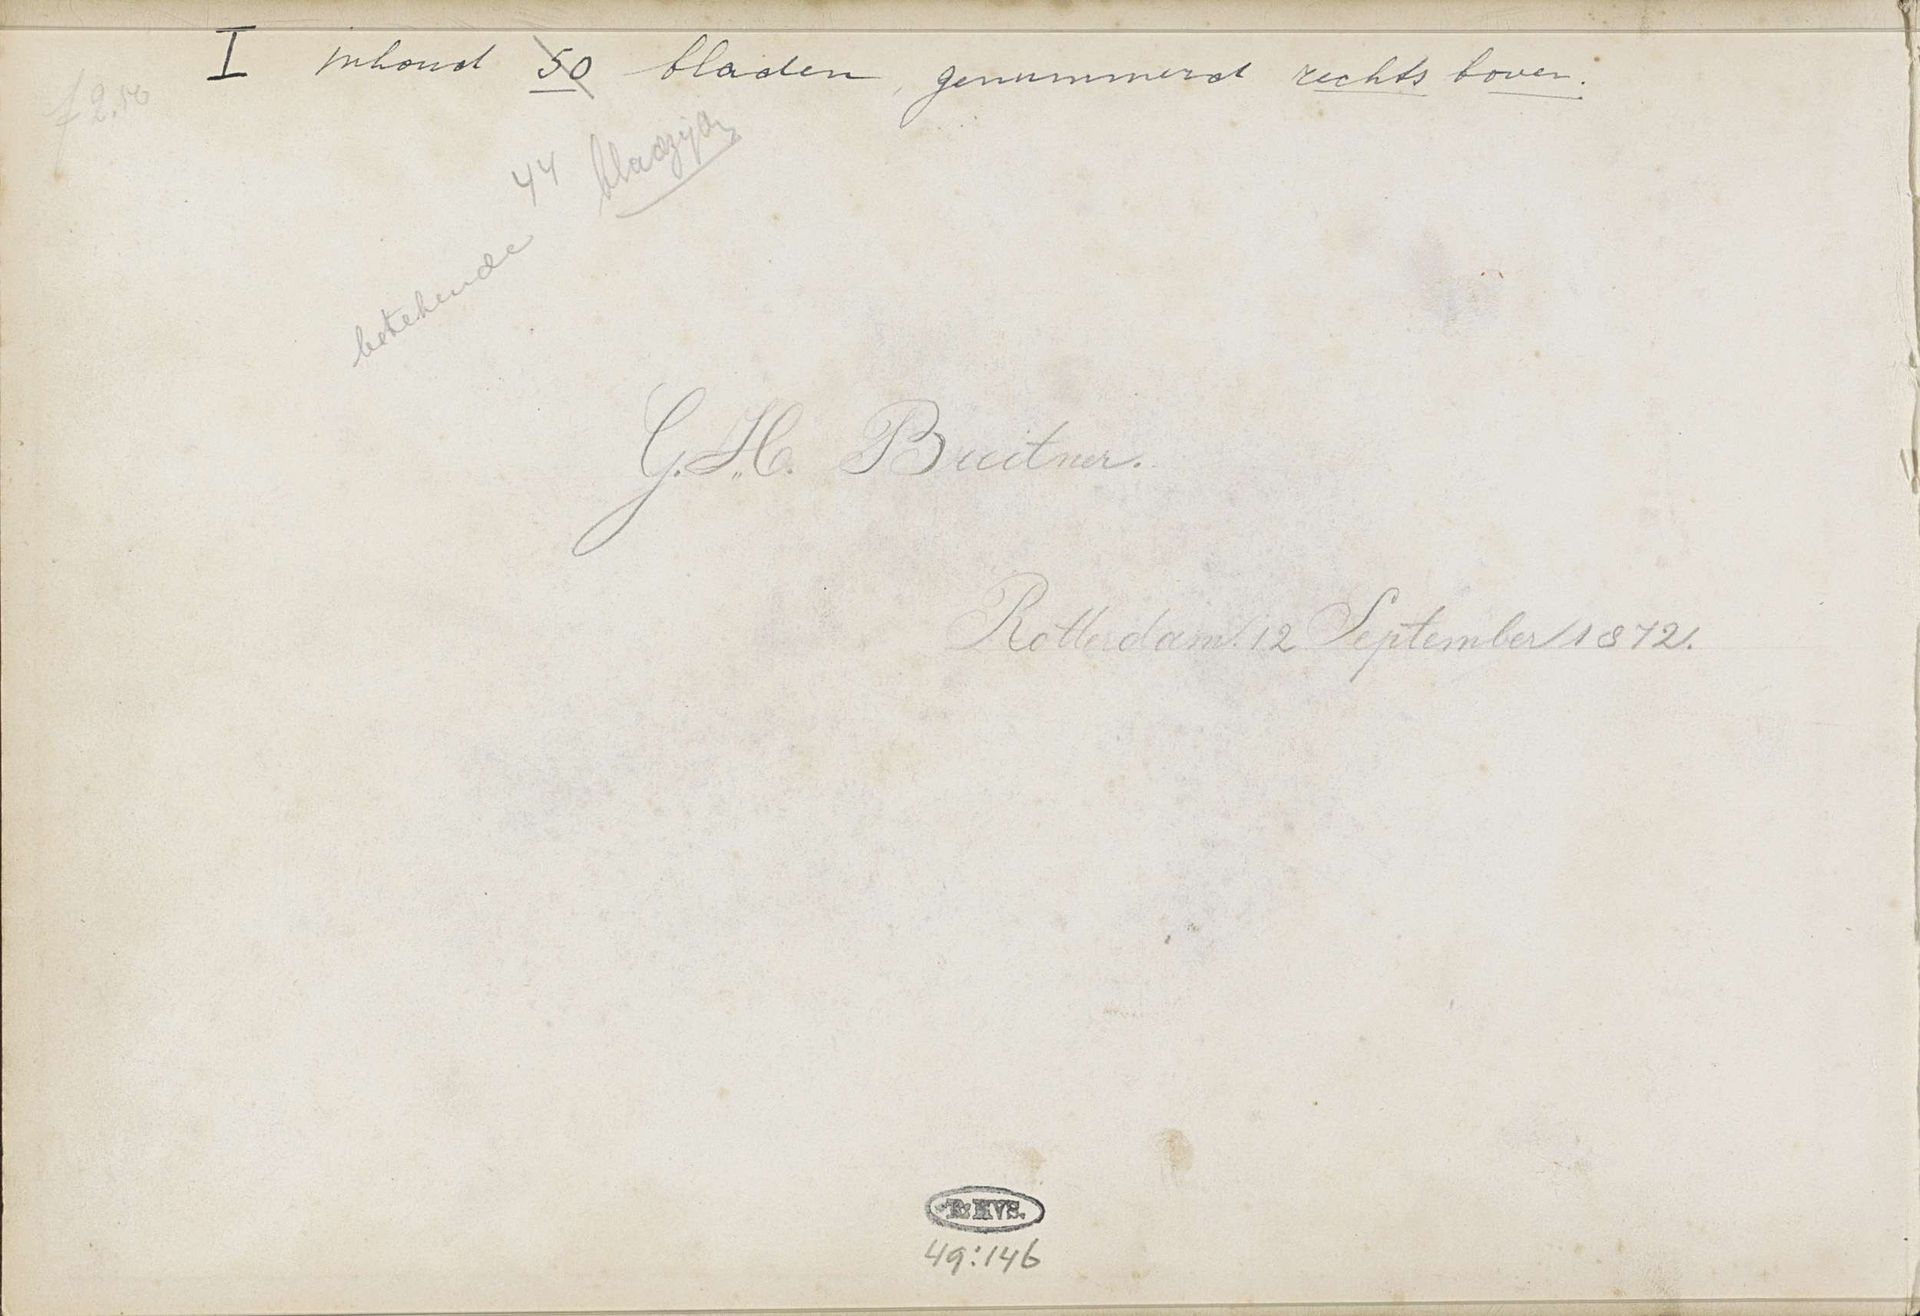 I inhoud 50 bladen, genummerd rechts boven.
f 2.50
betekende 44 bladzijden
G. H. Breitner.
Rotterdam. 12 September 1872.
R: MVS.
49:146